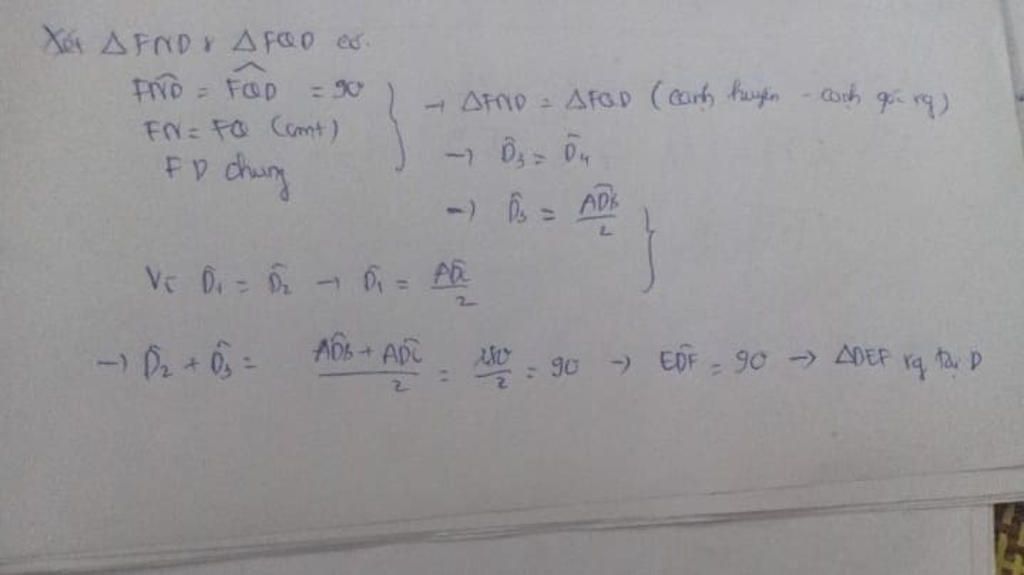 Xét △FND & △FQD có.
FN̂D = FQ̂D = 90
FN = FQ (cmt)
FD chung
→ △FND = △FQD (cạnh huyền - cạnh góc vg)
→ D̂₃ = D̂₄
→ D̂₃ = AD̂B/2
Vì D̂₁ = D̂₂ → D̂₁ = AD̂C/2
→ D̂₂ + D̂₃ = (AD̂B + AD̂C)/2 = 180/2 = 90 → ED̂F = 90 → △DEF vg tại D